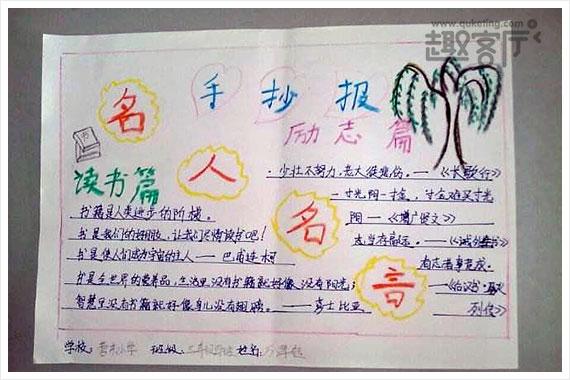 www.quketing.com
趣客厅
手抄报
名人名言
励志篇
读书篇
·少壮不努力,老大徒悲伤。——《长歌行》
一寸光阴一寸金,寸金难买寸光
阴——《增广贤文》
志当存高远。——《诫外甥书》
有志者事竟成。
——《后汉书·
列传》
书籍是人类进步的阶梯。
书是我们的好朋友,让我们尽情读书吧!
书是使人们成为宇宙的主人——巴甫连柯
书是全世界的营养品,生活里没有书籍就好像没有阳光;
智慧里没有书籍就好像鸟儿没有翅膀。——莎士比亚
学校: 小学 班级: 姓名: